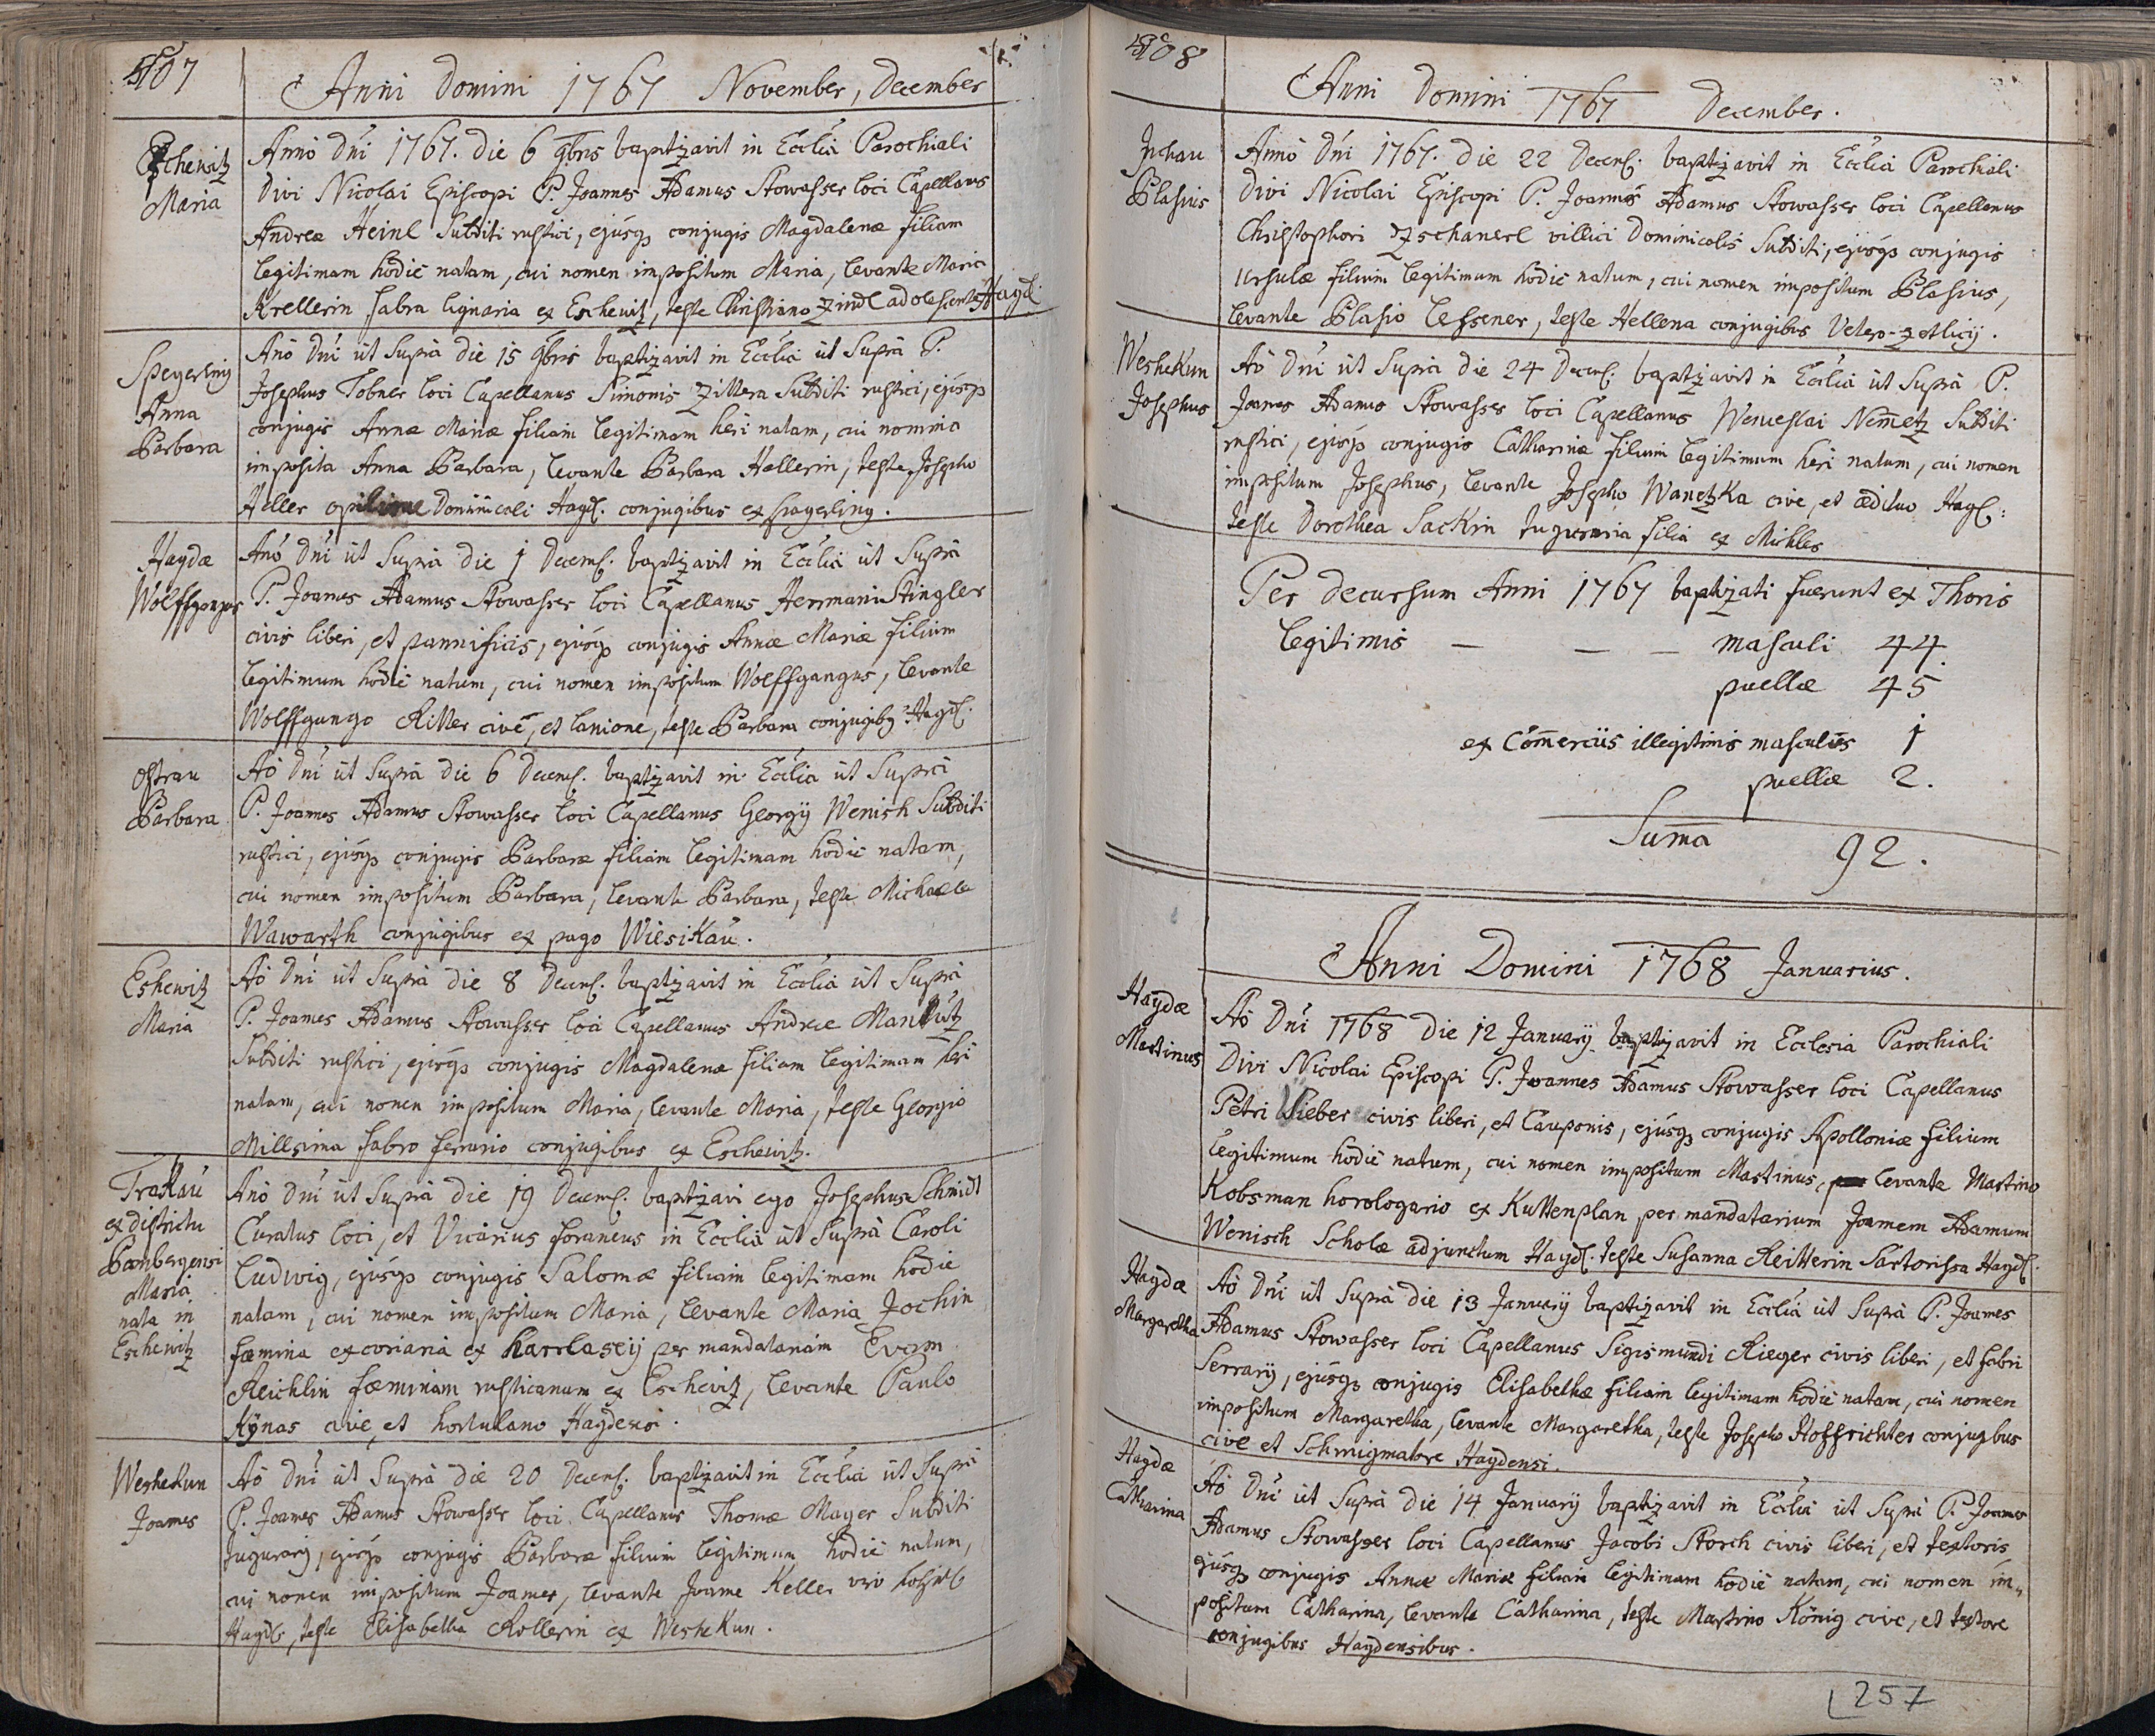 507
Anni Domini 1767 November, December
Eschewitz
Maria
Anno Dni 1767. die 6 9bris baptizavit in Ecclia Parochiali
Divi Nicolai Episcopi P. Joannes Adamus Stowasser loci Capellanus
Andreæ Heinl Subditi rustici, ejusq conjugis Magdalenæ filiam
legitimam hodie natam, cui nomen impositum Maria, levante Maria
Krellerin fabra lignaria ex Eschewitz, teste Christiano Zindl adolescente Hayd.
Speyerling
Anna
Barbara
Ano Dni ut Supra die 15 9bris baptizavit in Ecclia ut Supra P.
Josephus Tobner loci Capellanus Simonis Zittera Subditi rustici, ejusq
conjugis Annæ Mariæ filiam legitimam heri natam, cui nomina
imposita Anna Barbara, levante Barbara Hellerin, teste Josepho
Heller opilione Dominicali Hayd. conjugibus ex spegerling.
Haydæ
Wolffgangus
Ano Dni ut Supra die 1 Decemb. baptizavit in Ecclia ut Supra
P. Joannes Adamus Stowasser loci Capellanus Hermani Stingler
civis liberi, et pannificis, ejusq conjugis Annæ Mariæ filium
legitimum hodie natum, cui nomen impositum Wolffgangus, levante
Wolffgango Ritter cive, et lanione, teste Barbara conjugibg Hayd.
Ostrau
Barbara
Ao Dni ut Supra die 6 Decemb. baptizavit in Ecclia ut Supra
P. Joannes Adamus Stowasser loci Capellanus Georgij Wenish Subditi
rustici, ejusq conjugis Barbaræ filiam legitimam hodie natam,
cui nomen impositum Barbara, levante Barbara, teste Michaele
Wawarth conjugibus ex pago Wiesikau.
Eshewitz
Maria
Ao Dni ut Supra die 8 Decemb. baptizavit in Ecclia ut Supra
P. Joannes Adamus Stowasser loci Capellanus Andreæ
Subditi rustici, ejusq conjugis Magdalenæ filiam legitimam heri
natam, cui nomen impositum Maria, levante Maria, teste Georgio
Millsima fabro ferrario conjugibus ex Eschewitz.
Traskau
ex districtu
Maria
nata in
Eschewitz
Ano Dni ut Supra die 19 Decemb. baptizavi ego Josephus Schmidt
Curatus loci, et Vicarius foraneus in Ecclia ut Supra Caroli
Ludwig, ejusq conjugis Salomæ filiam legitimam hodie
natam, cui nomen impositum Maria, levante Maria Jochin
fæmina excoriaria ex Karrlaseij per mandatariam Evam
Reichlin fæminam rusticanam ex Eschevitz, levante Paulo
Kÿnas cive, et hortulano Haydensi.
Weshekun
Joannes
Ao Dni ut Supra die 20 Decemb. baptizavit in Ecclia ut Supra
P. Joannes Adamus Stowasser loci Capellanus Thomæ Mayer Subditi
Tugurarij, ejusq conjugis Barbaræ filium legitimum hodie natum,
cui nomen impositum Joannes, levante Joanne Keller
Hayd, teste Elisabetha Rollerin ex Weshekun.
508
Anni Domini 1767 December.
Juchau
Blasius
Anno Dni 1767. die 22 Decemb. baptizavit in Ecclia Parochiali
Divi Nicolai Episcopi P. Joannes Adamus Stowasser loci Capellanus
Christophori Zschanerl villici Dominicalis Subditi, ejusq conjugis
Ursulæ filium legitimum hodie natum, cui nomen impositum Blasius,
levante Blasio Lessener, teste Hellena conjugibus Vetero-Zetlicij.
Weshekun
Josephus
Ao Dni ut Supra die 24 Decemb. baptizavit in Ecclia ut Supra P.
Joanes Adamus Stowasser loci Capellanus Wenceslai Nemetz Subditi
rustici, ejusq conjugis Catharinæ filium legitimum heri natum, cui nomen
impositum Josephus, levante Josepho Wanetzka cive, et ædituo Hayd:
teste Dorothea Sackin Tuguraria filia ex Michles
Per decursum Anni 1767 baptizati fuerunt ex Thoris
legitimis — — — masculi 44.
puellæ 45
ex Comerciis illegitimis masculus 1
puellæ 2.
Suma 92.
Anni Domini 1768 Januarius.
Haydæ
Martinus
Ao Dni 1768 die 12 Januarij baptizavit in Ecclesia Parochiali
Divi Nicolai Episcopi P. Joannes Adamus Stowasser loci Capellanus
Petri Sieber civis liberi, et Cauponis, ejusq conjugis Apolloniæ filium
legitimum hodie natum, cui nomen impositum Martinus, levante Martino
Kobsman horologario ex Kuttenplan per mandatarium Joannem Adamum
Wenisch Scholæ adjunctum Hayd. teste Susanna Reitterin Sartorissa Hayd.
Haydæ
Margaretha
Ao Dni ut Supra die 13 Januarij baptizavit in Ecclia ut Supra P. Joannes
Adamus Stowasser loci Capellanus Sigismundi Rieger civis liberi, et fabri
Serrarij, ejusq conjugis Elisabethæ filiam legitimam hodie natam, cui nomen
impositum Margaretha, levante Margaretha, teste Josepho Hoffrichter conjugbus
cive et Schmigmatore Haydensi.
Haydæ
Catharina
Ao Dni ut Supra die 14 Januarij baptizavit in Ecclia ut Supra P. Joannes
Adamus Stowasser loci Capellanus Jacobi Storch civis liberi, et textoris
ejusq conjugis Annæ Mariæ filiam legitimam hodie natam, cui nomen im„
positum Catharina, levante Catharina, teste Martino König cive, et textore
conjugibus Haydensibus.
257